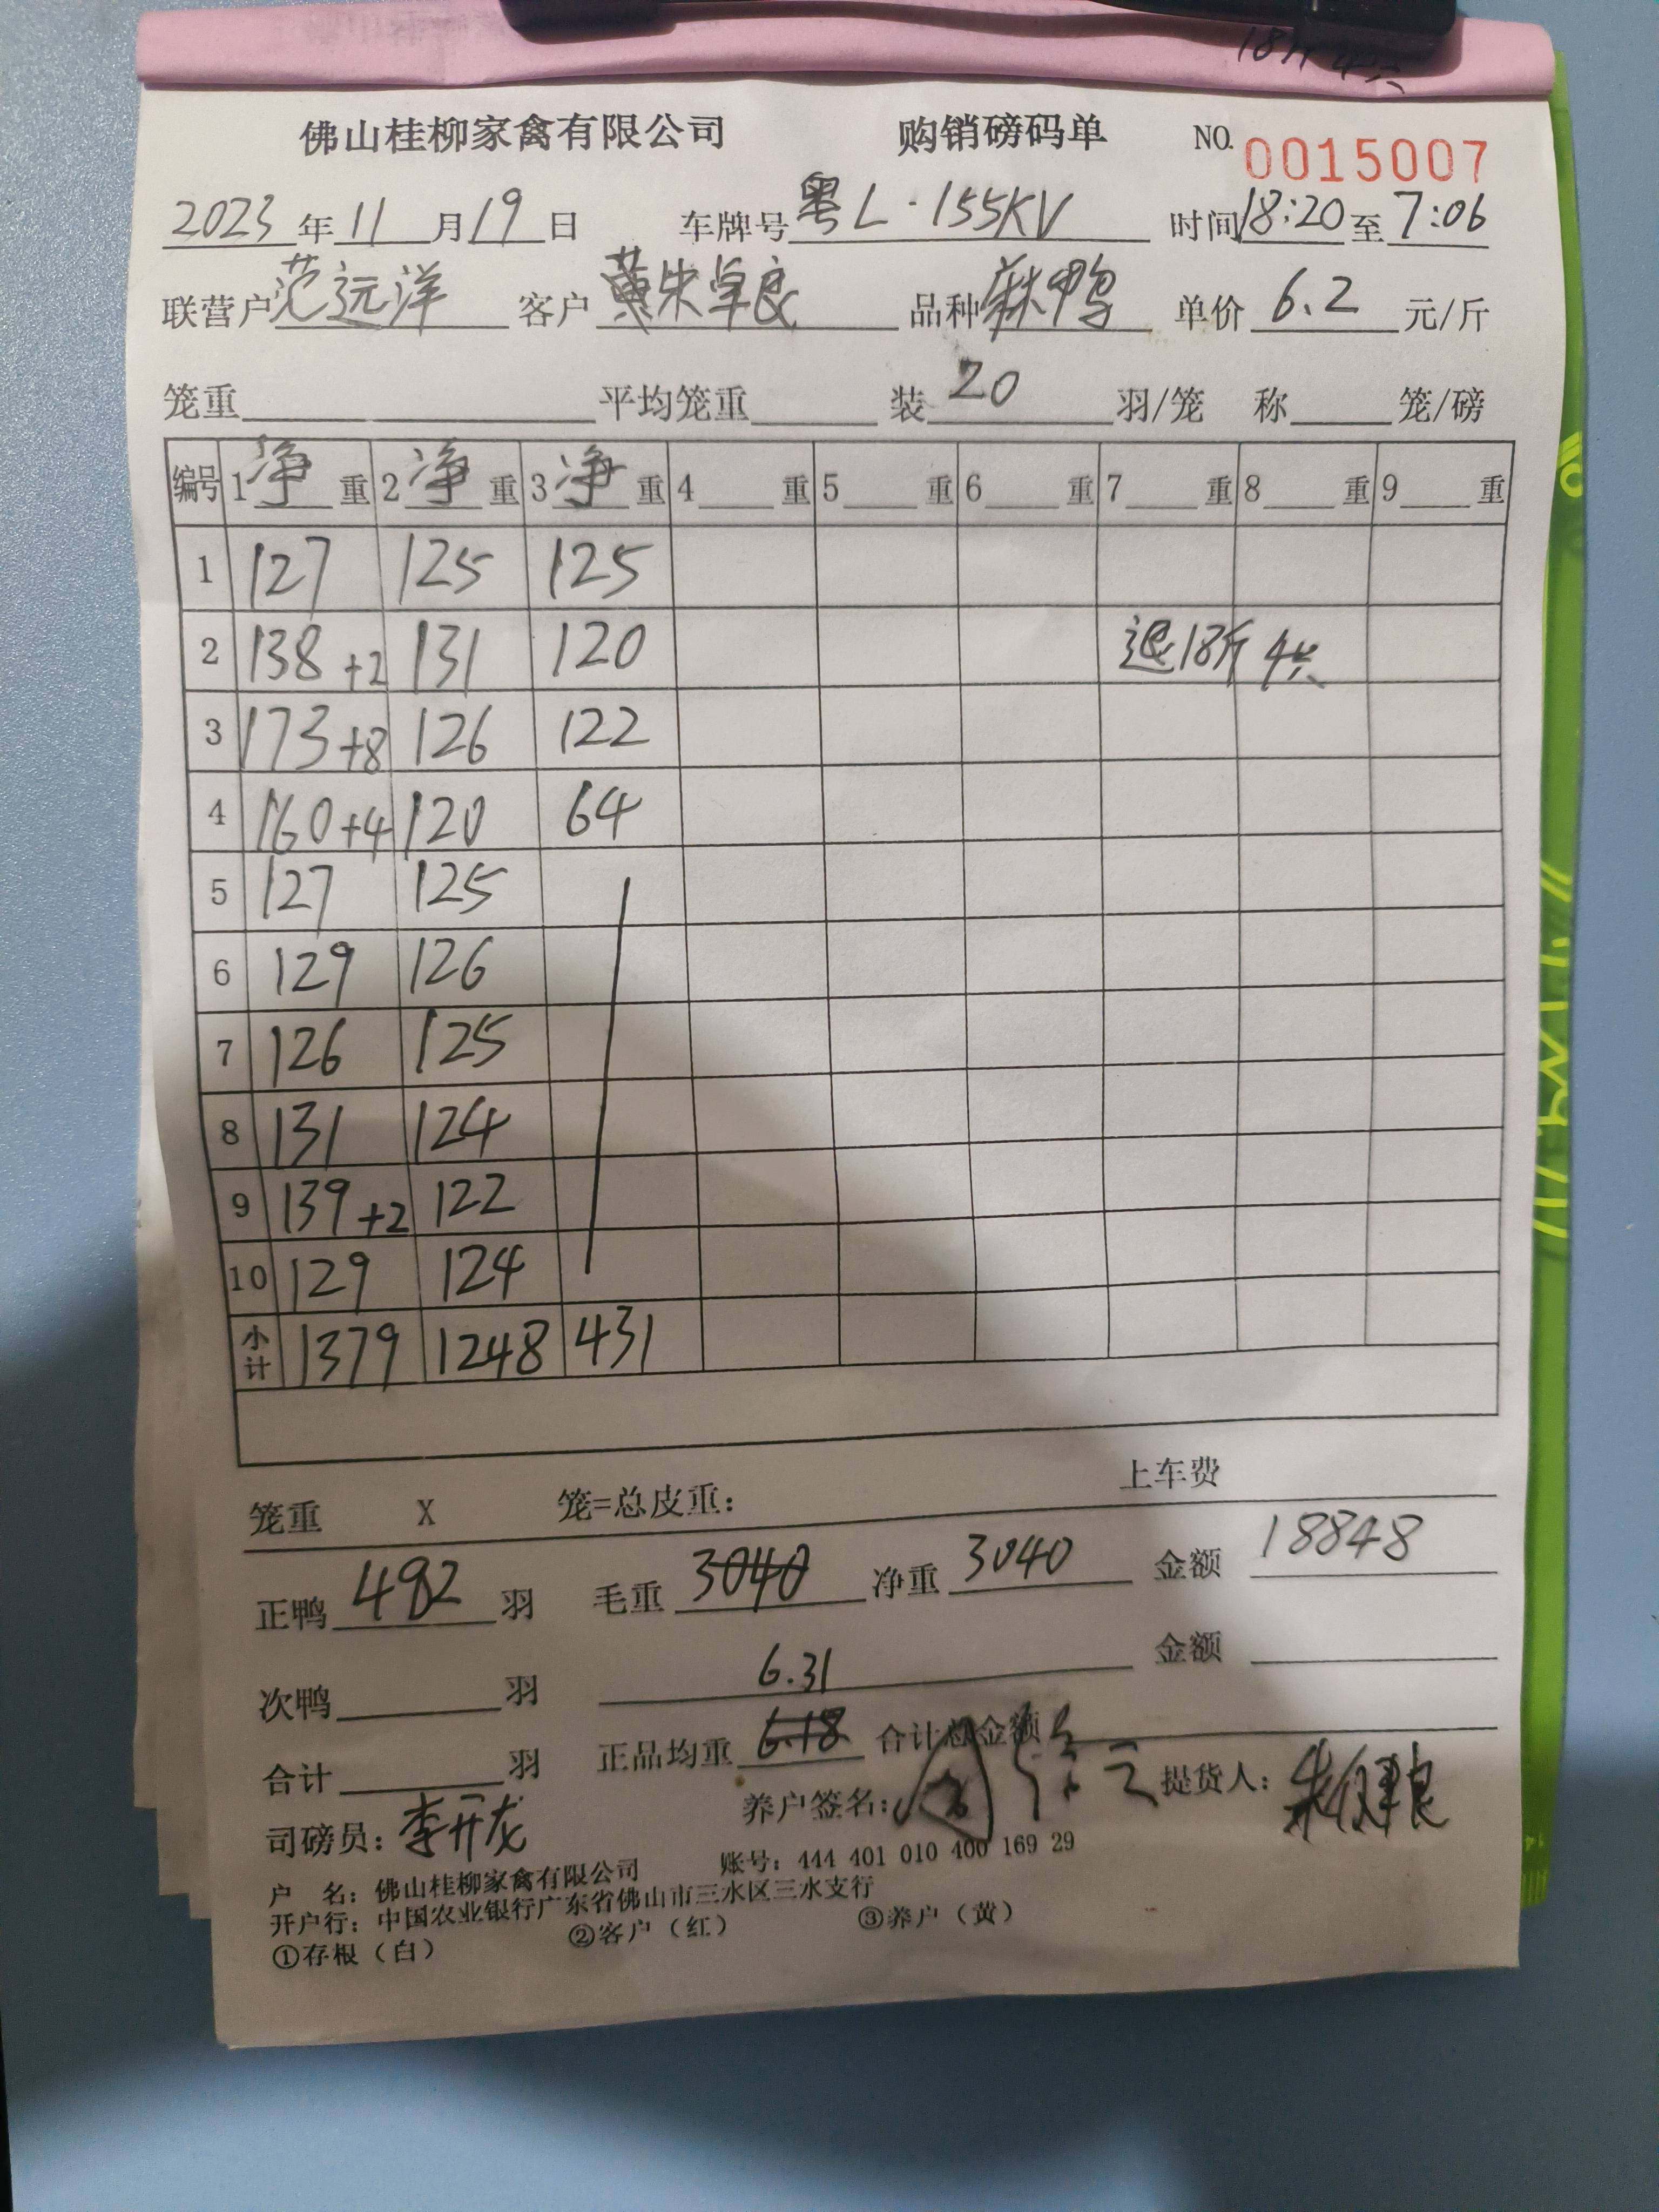 18斤 4只
佛山桂柳家禽有限公司 购销磅码单 NO. 0015007
2023年11月19日 车牌号 粤L·155KV 时间 18:20 至 7:06
联营户 范远洋 客户 朱卓良 品种 麻鸭 单价 6.2 元/斤
笼重 平均笼重 装 20 羽/笼 称 笼/磅
编号 1 净 重 2 净 重 3 净 重 4 重 5 重 6 重 7 重 8 重 9 重
1 127 125 125
2 138+2 131 120 退18斤 4只
3 173+8 126 122
4 160+4 120 64
5 127 125
6 129 126
7 126 125
8 131 124
9 139+2 122
10 129 124
小计 1379 1248 431
上车费
笼重 X 笼=总皮重:
正鸭 482 羽 毛重 3040 净重 3040 金额 18848
次鸭 羽 6.31 金额
合计 羽 正品均重 6.18 合计总金额
司磅员: 李开龙 养户签名: 提货人: 朱健良
户 名: 佛山桂柳家禽有限公司 账号: 444 401 010 400 169 29
开户行: 中国农业银行广东省佛山市三水区三水支行
①存根（白） ②客户（红） ③养户（黄）